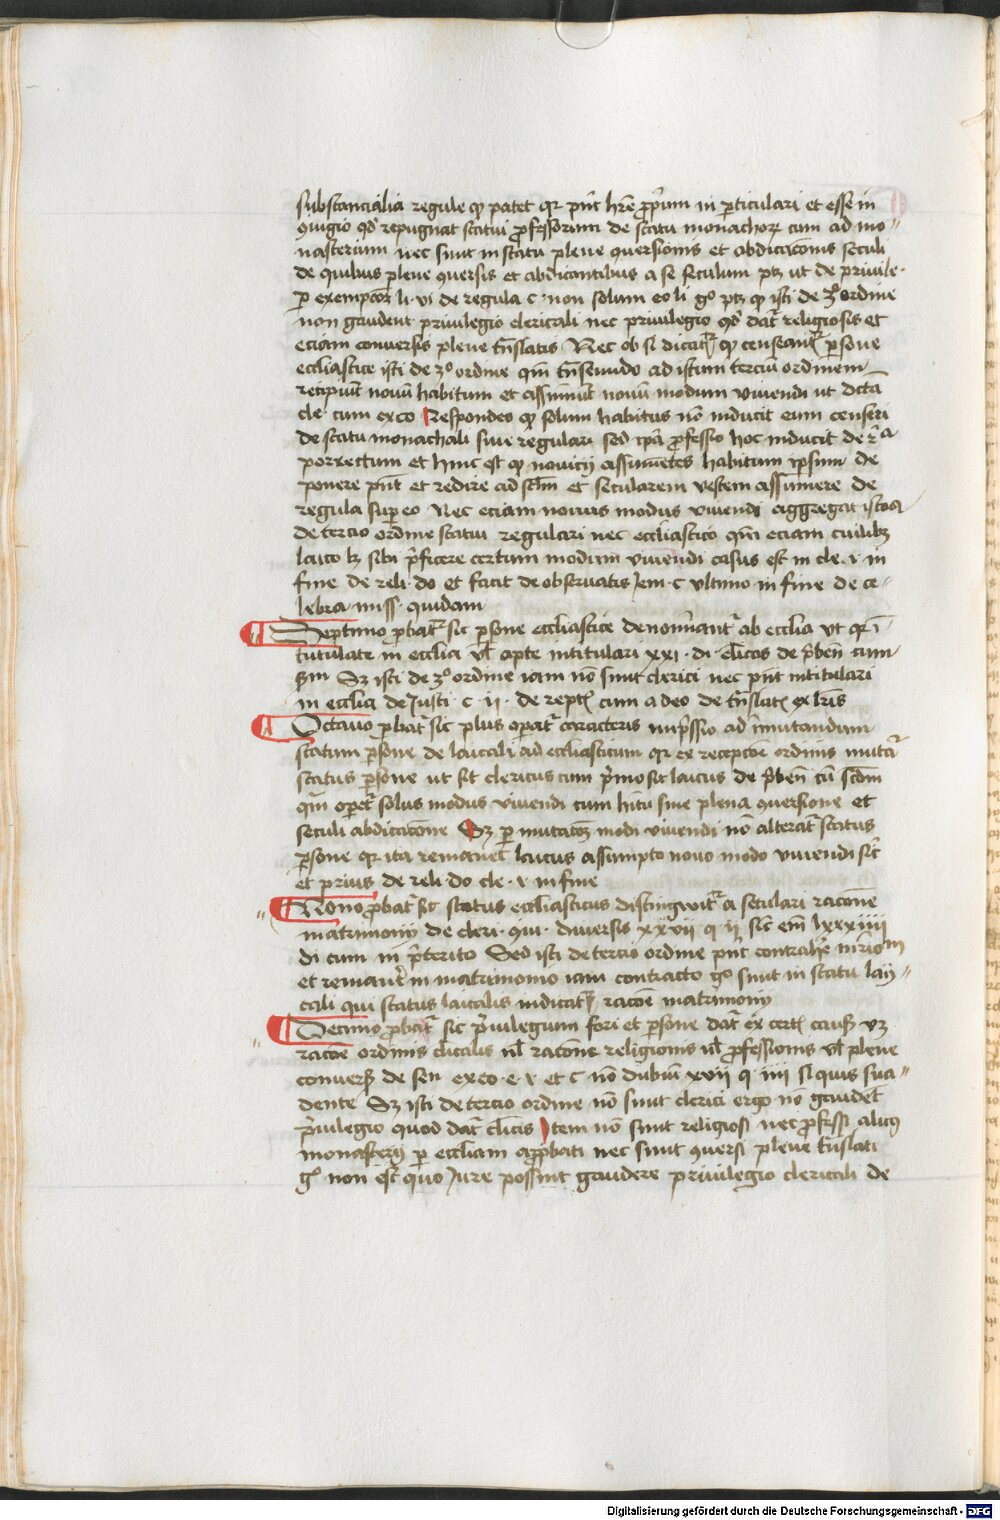 substancialia regule qz patet qr pn̄t hr̄e ꝓpum in ꝑticulari et esse in
ꝯiugio qd' repugnat statui ꝓfessorum de statu monachorꝫ cum ad mo
nasterium nec sunt in statu plene ꝯuersionis et abdicac̄onis seculi
de quibus plene ꝯuersis et abdicantibus a se seculum ptꝫ ut de priuile
ꝑ exempc̄oꝫ li. vi de regula c. non solum eo li gͦ ptꝫ qz isti de 3ͦ ordine
non gaudent priuilegio clericali nec priuilegio qd' dat' religiosis et
eciam conuersis plene tn̄slatis Nec ob si dicat' qz censeant' ꝑsone
eccl̄iastice isti de 3ͦ ordine qn̄ tn̄seundo ad istum terciū ordinem
recipiūt nouū habitum et assumūt nouū modum viuendi ut dc̄ta
cle. cum ex eo Respondeo qz solum habitus nō inducit eum censeri
de statu monachali siue regulari sed ip̄a ꝓfessio hoc inducit de r̄ᵃ
porrectum et hinc est qz nouicij assumētes habitum ipsum de
ponere pn̄t et redire ad sc̄lm et secularem vestem assumere de
regula suꝑ eo Nec eciam nouus modus viuendi aggregat istos
de tercio ordine statui regulari nec eccl̄iastico qn̄ eciam cuilibꝫ
laico lꝫ sibi p̄ficere certum modum viuendi casus est in cle. i. in
fine de reli. do et facit de obseruatis Jem. c vltimo in fine de ce
lebra. miss. quidam
Septimo ꝓbat' sic ꝑsone eccl̄iastice denomīant' ab eccl̄ia vt qr ī
titulate in eccl̄ia vl' apte intitulari xxi. di. cl̄icos de p̄ben̄ cum
Sꝫ isti de 3ͦ ordine iam nō sunt clerici nec pn̄t intitulari
in eccl̄ia de Insti. c. ij. de rept' cum a deo de tn̄slat' ex lr̄is
Octauo ꝓbat' sic plus oꝑat' caracteris imp̄ssio ad īmutandum
statum ꝑsone de laicali ad eccl̄iasticum qr ex recepc̄oe ordinis mutat'
status ꝑsone ut sit clericus cum p̄mo sit laicus de p̄ben̄ cū sc̄dm
qm̄ oꝑet' solus modus viuendi cum hītu sine plena ꝯuersione et
seculi abdicac̄one Sꝫ ꝑ mutac̄oꝫ modi viuendi nō alterat' status
ꝑsone qr ita remanet laicus assumpto nouo modo viuendi sic̄
et prius de reli. do cle. i. in fine
Nono ꝓbat' sic status eccl̄iasticus distingwit' a seculari rac̄one
mat̄rimonij de cleri. ꝯiu. diuersis xxvij q ij sic̄ em̄ lxxxiiij
di cum in p̄terito Sed isti de tercio ordine pn̄t contrahe' mr̄ioⁿⁱ
et remane' in matrimonio iam contracto gͦ sunt in statu lay
cali qui status laicalis iudicat' rac̄oe matrimonij
Decimo ꝓbat' sic p̄uilegium fori et ꝑsone dat' ex cert' causis vꝫ
rac̄oe ordinis cl̄icalis vl' rac̄one religionis vl' ꝓfessionis vl' plene
conuers' de sen exco. e. i. et c nō dubiū xvij q iiij si quis sua
dente Sꝫ isti de tercio ordine nō sunt clerici ergo nō gaudēt
p̄uilegio quod dat' cl̄icis Jtem nō sunt religiosi nec ꝓfessi alicꝰ
monasterij ꝑ eccl̄iam apꝓbati nec sunt ꝯuersi plene tn̄slati
gͦ non est quo Jure possint gaudere priuilegio clericali de
Digitalisierung gefördert durch die Deutsche Forschungsgemeinschaft - DFG